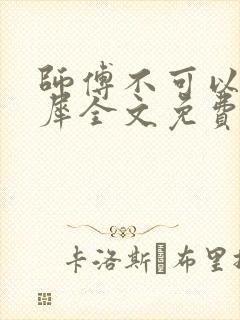 師傅不可以
犀全文免費
卡洛斯 布里